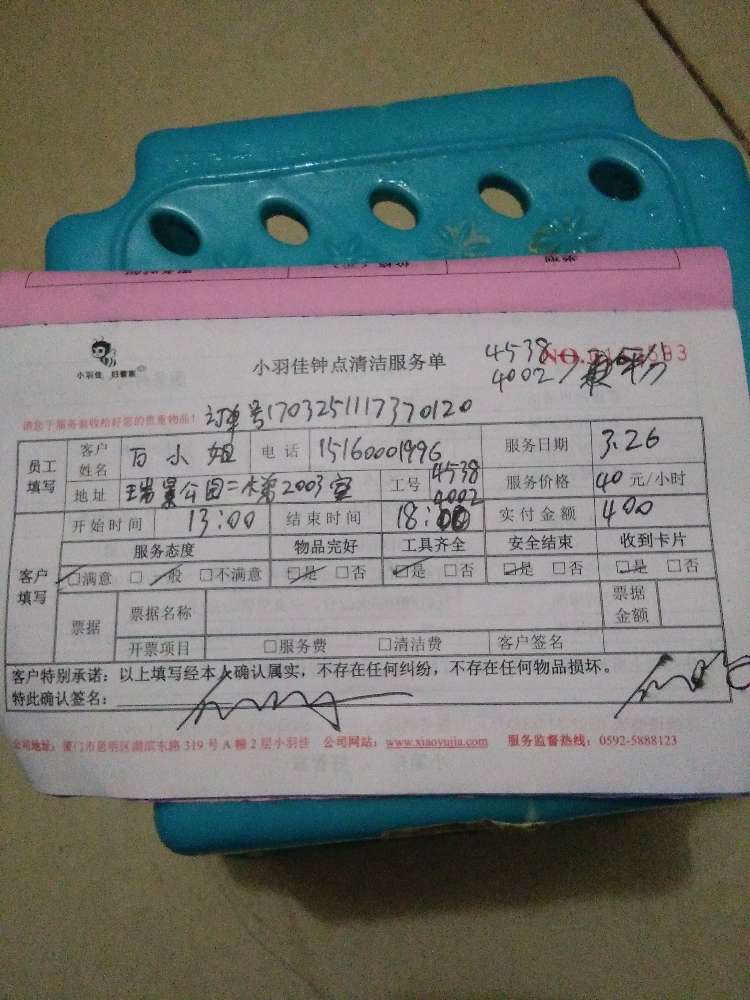 小羽佳 好管家
小羽佳钟点清洁服务单
4538
4002
NO.
请您下服务前收拾好您的贵重物品！
订单号1703251117370120
员工填写 客户姓名 百小姐 电话 15160001996 服务日期 3.26
地址 瑞景公园二水第2003室 工号 4538 4002 服务价格 40元/小时
客户填写 开始时间 13:00 结束时间 18:00 实付金额 400
服务态度 物品完好 工具齐全 安全结束 收到卡片
□满意 □一般 □不满意 □是 □否 □是 □否 □是 □否 □是 □否
票据 票据名称 票据金额
开票项目 □服务费 □清洁费 客户签名
客户特别承诺：以上填写经本人确认属实，不存在任何纠纷，不存在任何物品损坏。
特此确认签名：
公司地址：厦门市思明区湖滨东路319号A幢2层小羽佳 公司网站：www.xiaoyujia.com 服务监督热线：0592-5888123